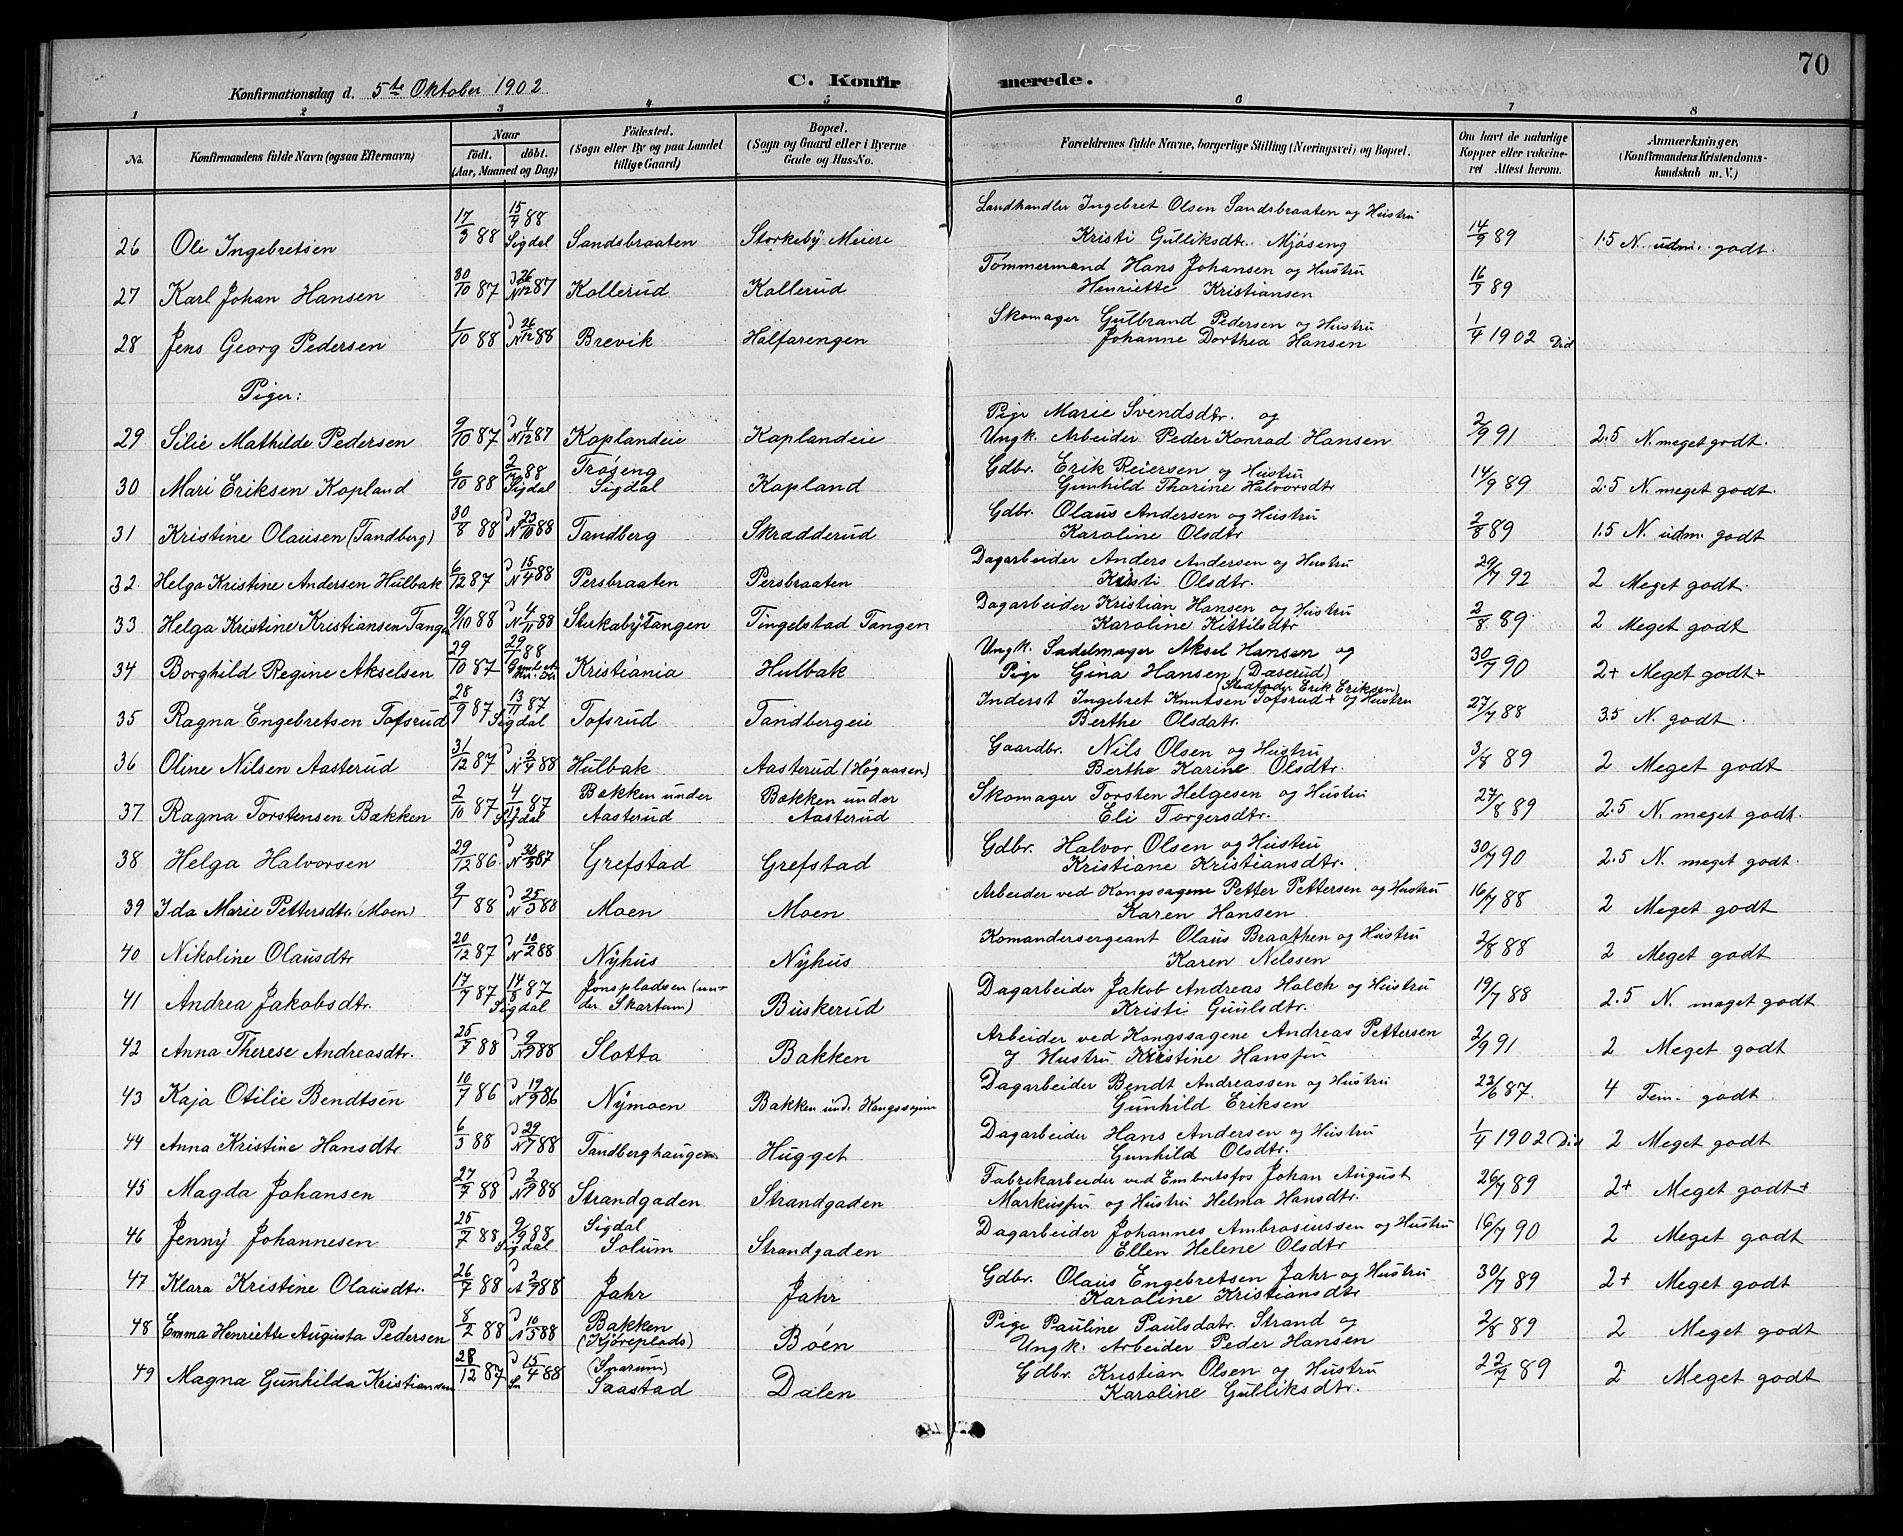 70
Konfirmationsdag d. 5te Oktober 1902 C. Konfirmerede.
1 2 3 4 5 6 7 8
No. Konfirmandens fulde Navn (ogsaa Efternavn) Naar født. døbt. (Aar, Maaned og Dag) Fødested. (Sogn eller By og paa Landet tillige Gaard) Bopæl. (Sogn og Gaard eller i Byerne Gade og Hus-No. Forældrenes fulde Navne, borgerlige Stilling (Næringsvei) og Bopæl. Om havt de naturlige Kopper eller vakcineret Attest herom. Anmærkninger. (Konfirmandens Kristendomskundskab m. V.)
26 Ole Ingebretsen 17/3 88 15/4 88 Sigdal Sandsbraaten Storkeby Meieri Landhandler Ingebret Olsen Sandsbraaten og Hustru
Kristi Gulliksdtr. Mjøseng 14/9 89 1.5 N. udm. godt.
27 Karl Johan Hansen 30/10 87 N 26/12 87 Kollerud Kollerud Tømmermand Hans Johansen og Hustru
Henriette Kristiansen 16/9 89
28 Jens Georg Pedersen 1/10 88 N 26/12 88 Brevik Halfarengen Skomager Gulbrand Pedersen og Hustru
Johanne Dorthea Hansen 1/4 1902 Did
Piger:
29 Silie Mathilde Pedersen 9/10 87 N 4/12 87 Koplandeie Koplandeie Pige Marie Svendsdtr. og
Ungk. Arbeider Peder Konrad Hansen 2/9 91 2.5 N. meget godt.
30 Mari Eriksen Kopland 6/10 88 88 Sigdal Trøseng Sigdal Kopland Gdbr. Erik Reiersen og Hustru
Gunhild Thorine Halvorsdtr 14/9 89 2.5 N. meget godt.
31 Kristine Olausen (Tandberg) 30/8 88 N 23/10 88 Tandberg Skrædderud Gdbr. Olaus Andersen og Hustru
Karoline Olsdtr 2/8 89 1.5 N. udm. godt
32. Helga Kristine Andersen Hulbak 6/12 87 N 15/4 88 Persbraaten Persbraaten Dagarbeider Anders Andersen og Hustru
Kristi Olsdtr. 29/7 92 2 Meget godt.
33 Helga Kristine Kristiansen Tangen 9/10 88 N 4/11 88 StukabyTangen Tingelstad Tangen Dagarbeider Kristian Hansen og Hustru
Karoline Kittilsdtr 2/8. 89 2 Meget godt
34 Borghild Regine Akselsen 29/10 87 29/1 88 Kristiania Hulbak Ungk. Sadelmager Aksel Hansen og
Pige Gina Hansen (Dæserud) 30/7 90 2+ Meget godt+
(Stedfader Erik Eriksen)
35 Ragna Engebretsen Tofsrud 28/9 87 13/11 87 Sigdal Tofsrud Tandbergeie Inderst Ingebret Knutsen Tofsrud + og Hustru
Berthe Olsdatr. 27/7 88 3.5 N. godt.
36 Oline Nilsen Aasterud 31/12 87 N 2/4 88 Hulbak Aasterud (Høgaasen) Gaardbr. Nils Olsen og Hustru
Berthe Karine Olsdtr. 3/8 89 2 Meget godt
37 Ragna Torstensen Bakken 2/10 87 4/12 87 Sigdal Bakken under Aasterud Bakken under Aasterud Skomager Torsten Helgesen og Hustru
Eli Torgersdtr. 27/8 89 2.5 N. meget godt.
38 Helga Halvorsen 29/12 86. N 30/5 87 Grefstad Grefstad Gdbr. Halvor Olsen og Hustru
Kristiane Kristiansdtr. 30/7 90 2.5 N. meget godt.
39 Ida Marie Pettersdtr. (Moen) 9/1 88 N 25/3 88 Moen Moen Arbeider ved Kongssagene Petter Pettersen og Hustru
Karen Hansen 16/7 88 2 Meget godt
40 Nikoline Olausdtr 20/12 87 N 10/2 88 Nyhus Nyhus Komandersergeant Olaus Braathen og Hustru
Karen Nelssen 2/8 88 2 Meget godt
41 Andrea Jakobsdtr. 17/7 87 14/8 87 Sigdal Jonspladsen (under Skartum) Buskerud Dagarbeider Jakob Andreas Holch og Hustru
Kristi Guulsdtr. 19/7 88 2.5 N. maget godt
42 Anna Therese Andreasdtr. 25/7 88 N 9/9 88 Slotta Bakken Arbeider ved Kongssagene Andreas Pettersen
og Hustru Kristine Hansdtr 2/9 91 2 Meget godt
43 Kaja Otilie Bendtsen 10/7 86 N 19/9 86 Nymoen Bakken und. Kongssagene Dagarbeider Bendt Andreassen og Hustru
Gunhild Eriksen 22/6 87. 4 Tem. godt
44 Anna Kristine Hansdtr. 6/3 88 N 29/7 88 Tandberghaugen Hugget Dagarbeider Hans Andersen og Hustru
Gunhild Olsdtr. 1/4 1902 Did 2 Meget godt
45 Magda Johansen 27/7 88 N 2/9 88 Strandgaden Strandgaden Fabrikarbeider ved Embretsfos Johan August
Markussen og Hustru Helma Hansdtr. 26/7 89 2+ Meget godt+
46 Jenny Johannesen 25/7 88 9/9 88 Sigdal Sigdal Solum Strandgaden Dagarbeider Johannes Ambrosiussen og Hustru
Ellen Helene Olsdtr 16/7 90 2 Meget godt
47 Klara Kristine Olausdtr. 26/7 88 N 2/9 88 Jahr Jahr Gdbr. Olaus Engebretsen Jahr og Hustru
Karoline Kristiansdtr 30/7 89 2+ Meget godt
48 Emma Henriette Augusta Pedersen 8/2 88 N 10/5 88 Bakken (Kjøreplads) Bøen Pige Pauline Paulsdatr. Strand og
Ungk. Arbeider Peder Hansen 2/8 89 2 Meget godt
49 Magna Gunhilda Kristiansen 28/12 87 Sn 15/4 88 (Snarum) Saastad Dalen Gdbr. Kristian Olsen og Hustru
Karoline Gulliksdtr. 22/7 89 2 Meget godt